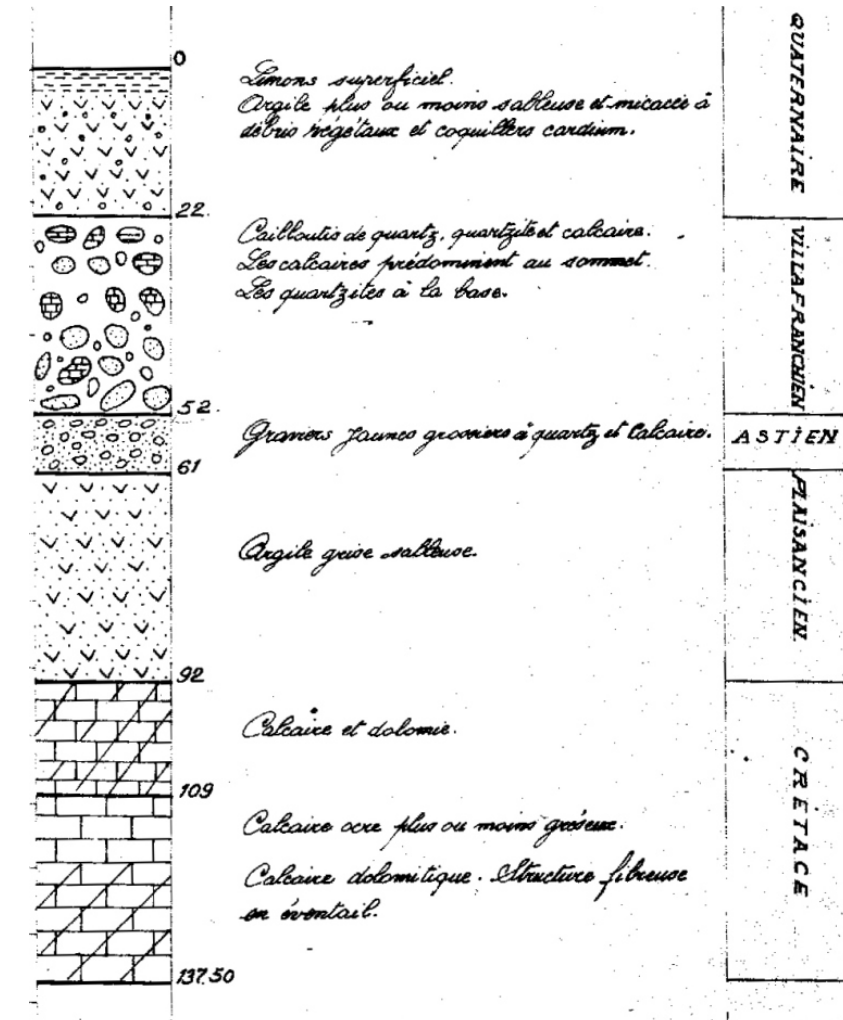 0
Limons superficiel.
Argile plus ou moins sableuse et micacée à
débris végétaux et coquillers cardium.
QUATERNAIRE
22.
Cailloutis de quartz, quartzite et calcaire.
Les calcaires prédominent au sommet.
Les quartzites à la base.
VILLAFRANCHIEN
52.
Graviers jaunes grossiers à quartz et Calcaire.
ASTIEN
61
Argile grise sableuse.
PLAISANCIEN.
92
Calcaire et dolomie.
109
Calcaire ocre plus ou moins gréseux.
Calcaire dolomitique. Structure fibreuse
en éventail.
CRÉTACE
137.50